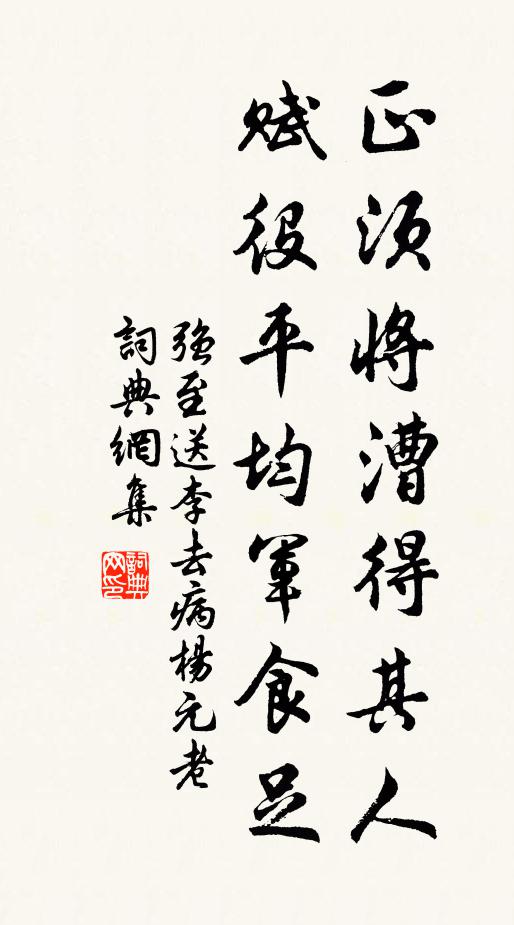 正須將漕得其人
賦役平均軍食足
強至送李去病楊元老
詞典網集
詞典
网印